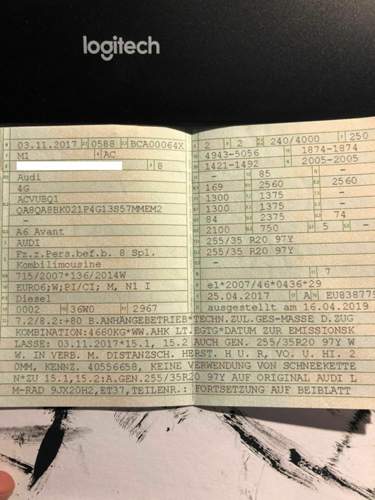 logitech
03.11.2017 0588 BCA00064X
M1 AC
8
Audi
4G
ACVUBQ1
QA8QA8BK021P4G13S57MMEM2
-
A6 Avant
AUDI
Fz.z.Pers.bef.b. 8 Spl.
Kombilimousine
715/2007*136/2014W
EURO6;W;PI/CI; M, N1 I
Diesel
0002 36W0 2967
2 2 240/4000 250
4943-5056 1874-1874
1421-1492 2005-2005
- 85 -
169 2560 2560
1300 1375 -
1300 1375 -
84 2375 74
2100 750 5 -
255/35 R20 97Y
255/35 R20 97Y
-
7
e1*2007/46*0436*29
25.04.2017 A EU838775
ausgestellt am 16.04.2019
7.2/8.2:+80 B.ANHÄNGEBETRIEB*TECHN.ZUL.GES-MASSE D.ZUG
KOMBINATION:4680KG*WW.AHK LT.EGTG*DATUM ZUR EMISSIONSK
LASSE: 03.11.2017*15.1, 15.2 AUCH GEN. 255/35R20 97Y W
W. IN VERB. M. DISTANZSCH. HERST. H U. R, VO. U. HI. 2
0MM, KENNZ. 40556658, KEINE VERWENDUNG VON SCHNEEKETTE
N*ZU 15.1,15.2:A.GEN.255/35R20 97Y AUF ORIGINAL AUDI L
M-RAD 9JX20H2,ET37,TEILENR.: FORTSETZUNG AUF BEIBLATT